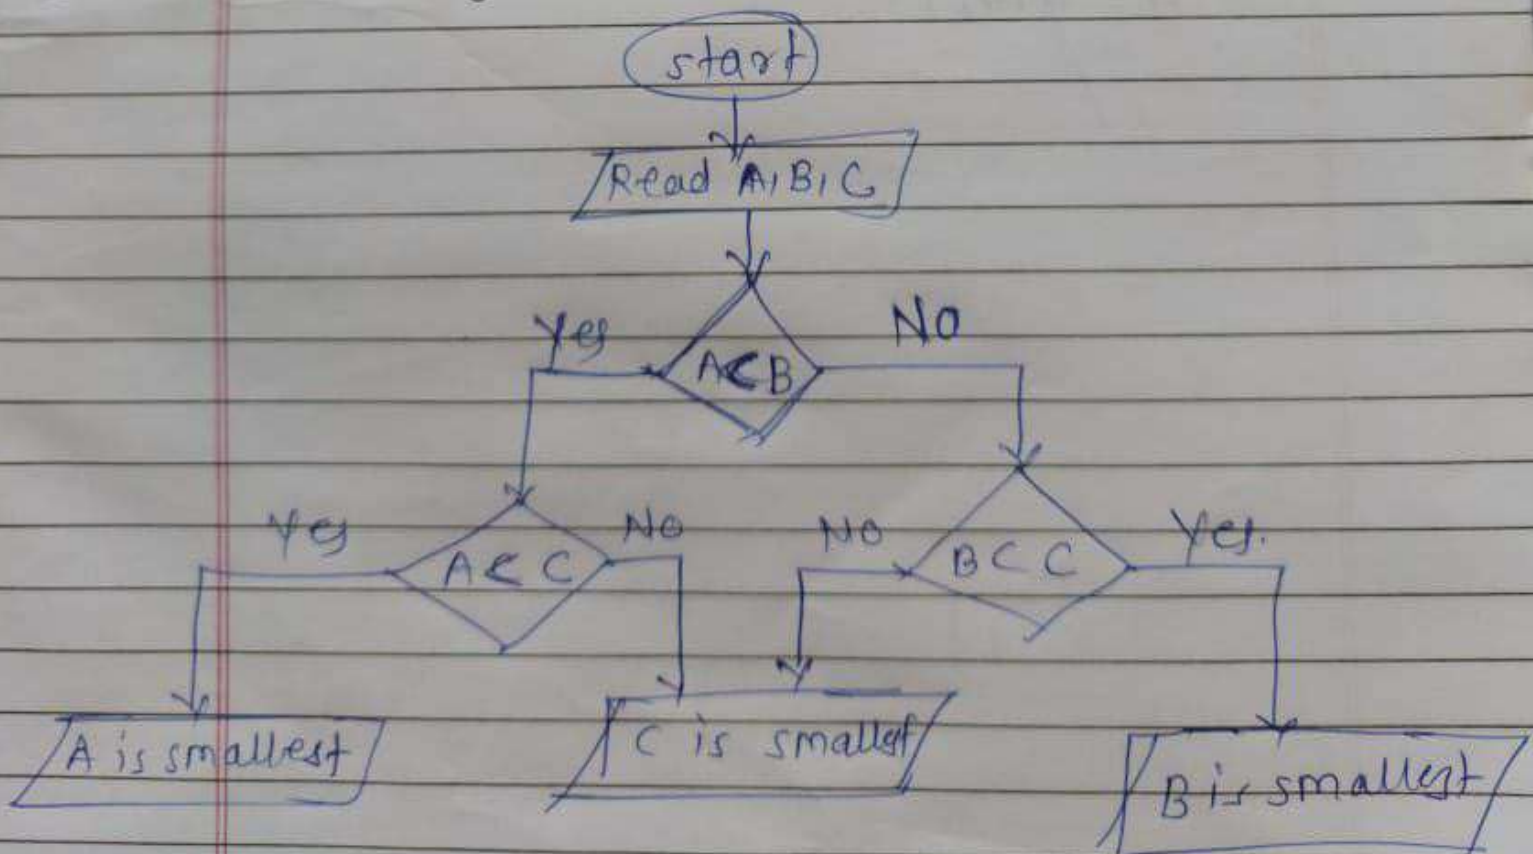 start
Read A, B, C
Yes
No
A<B
Yes
No
No
Yes.
A<C
B<C
A is smallest
C is smallest
B is smallest